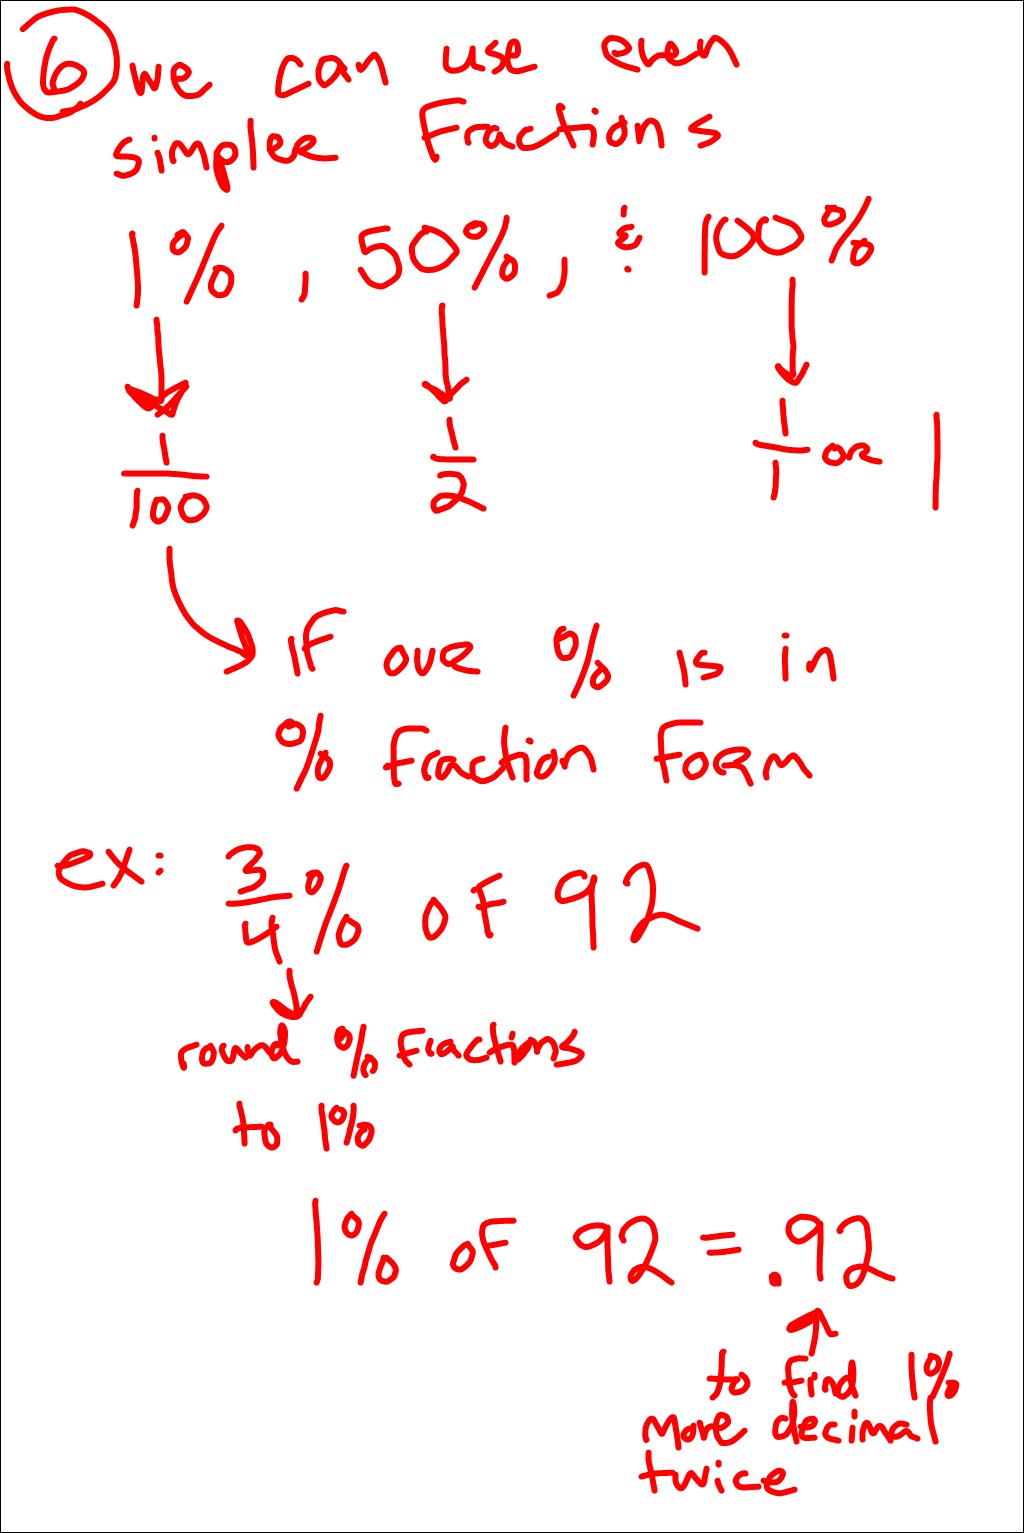 6 we can use even
simpler Fractions
1% , 50%, & 100%
1/100 1/2 1/1 or 1
if our % is in
% fraction form
ex: 3/4% of 92
round % fractions
to 1%
1% of 92 = .92
to find 1%
move decimal
twice